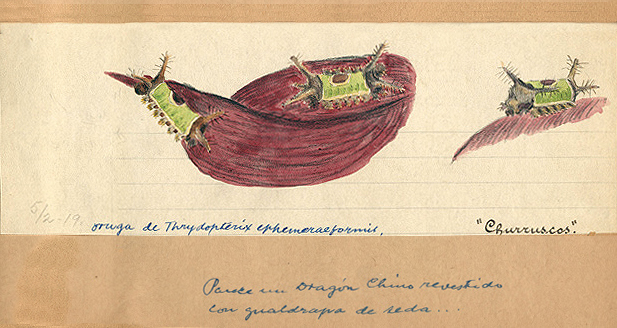 5/2-19.
oruga de Thrydopterix ephemeraeformis.
"Churruscos".
Parece un Dragón Chino revestido
con gualdrapa de seda...